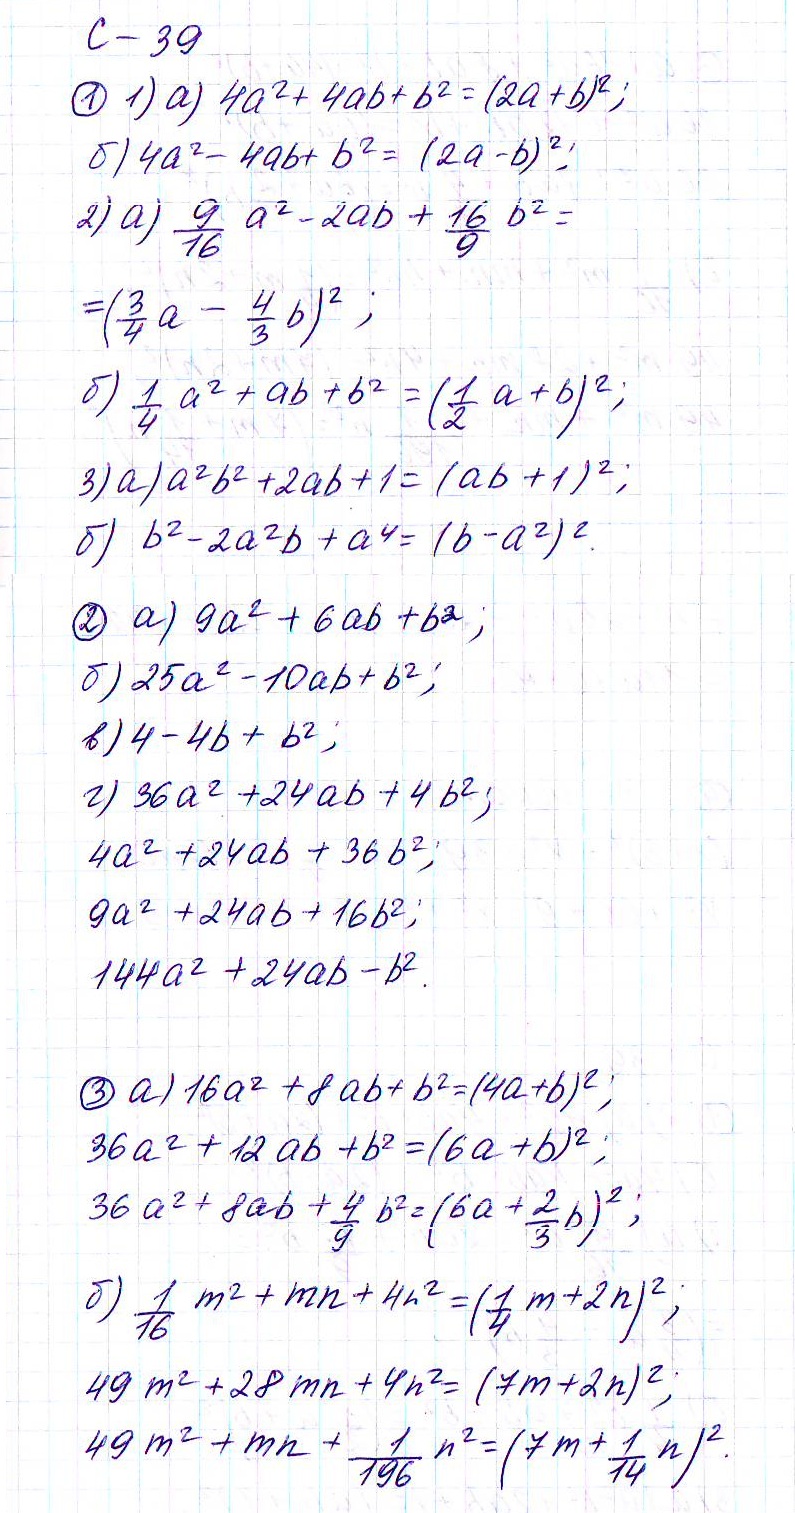 С-39
① 1) а) 4a² + 4ab + b² = (2a+b)²;
б) 4a² - 4ab + b² = (2a-b)²;
2) а) 9/16 a² - 2ab + 16/9 b² =
= (3/4 a - 4/3 b)²;
б) 1/4 a² + ab + b² = (1/2 a + b)²;
3) а) a²b² + 2ab + 1 = (ab + 1)²;
б) b² - 2a²b + a⁴ = (b - a²)².
② а) 9a² + 6ab + b²;
б) 25a² - 10ab + b²;
в) 4 - 4b + b²;
г) 36a² + 24ab + 4b²;
4a² + 24ab + 36b²;
9a² + 24ab + 16b²;
144a² + 24ab - b².
③ а) 16a² + 8ab + b² = (4a+b)²;
36a² + 12ab + b² = (6a+b)²;
36a² + 8ab + 4/9 b² = (6a + 2/3 b)²;
б) 1/16 m² + mn + 4n² = (1/4 m + 2n)²;
49m² + 28mn + 4n² = (7m+2n)²;
49m² + mn + 1/196 n² = (7m + 1/14 n)².